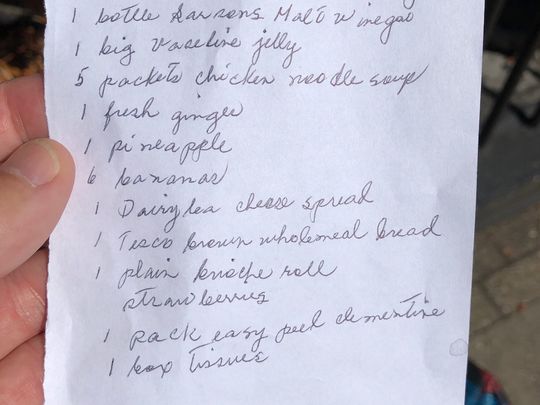 1 bottle Sarsons Malt Vinegar
1 big vaseline jelly
5 packets chicken noodle soup
1 fresh ginger
1 pineapple
6 bananas
1 Dairylea cheese spread
1 Tesco brown wholemeal bread
1 plain brioche roll
strawberries
1 pack easy peel clementine
1 box tissues